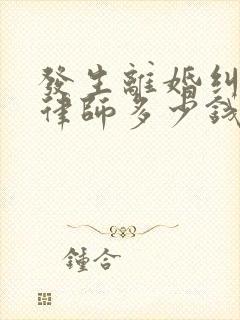 發生離婚糾
律師多少錢
鍾合